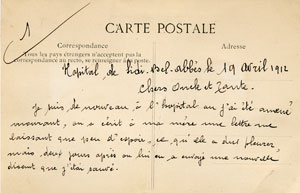 1
CARTE POSTALE
Correspondance
Tous les pays étrangers n'acceptent pas la
correspondance au recto, se renseigner à la poste.
Adresse
Hôpital de Sidi-Bel-abbès le 19 avril 1912
Chers Oncle et Tante.
Je suis de nouveau à l'hôpital ou j'ai été amené
mourant, on a écrit à ma mère une lettre ne
laissant que peu d'espoir, ce qu'elle a dut pleurer,
mais, deux jours après on lui en a envoyé une nouvelle
disant que j'étai sauvé.